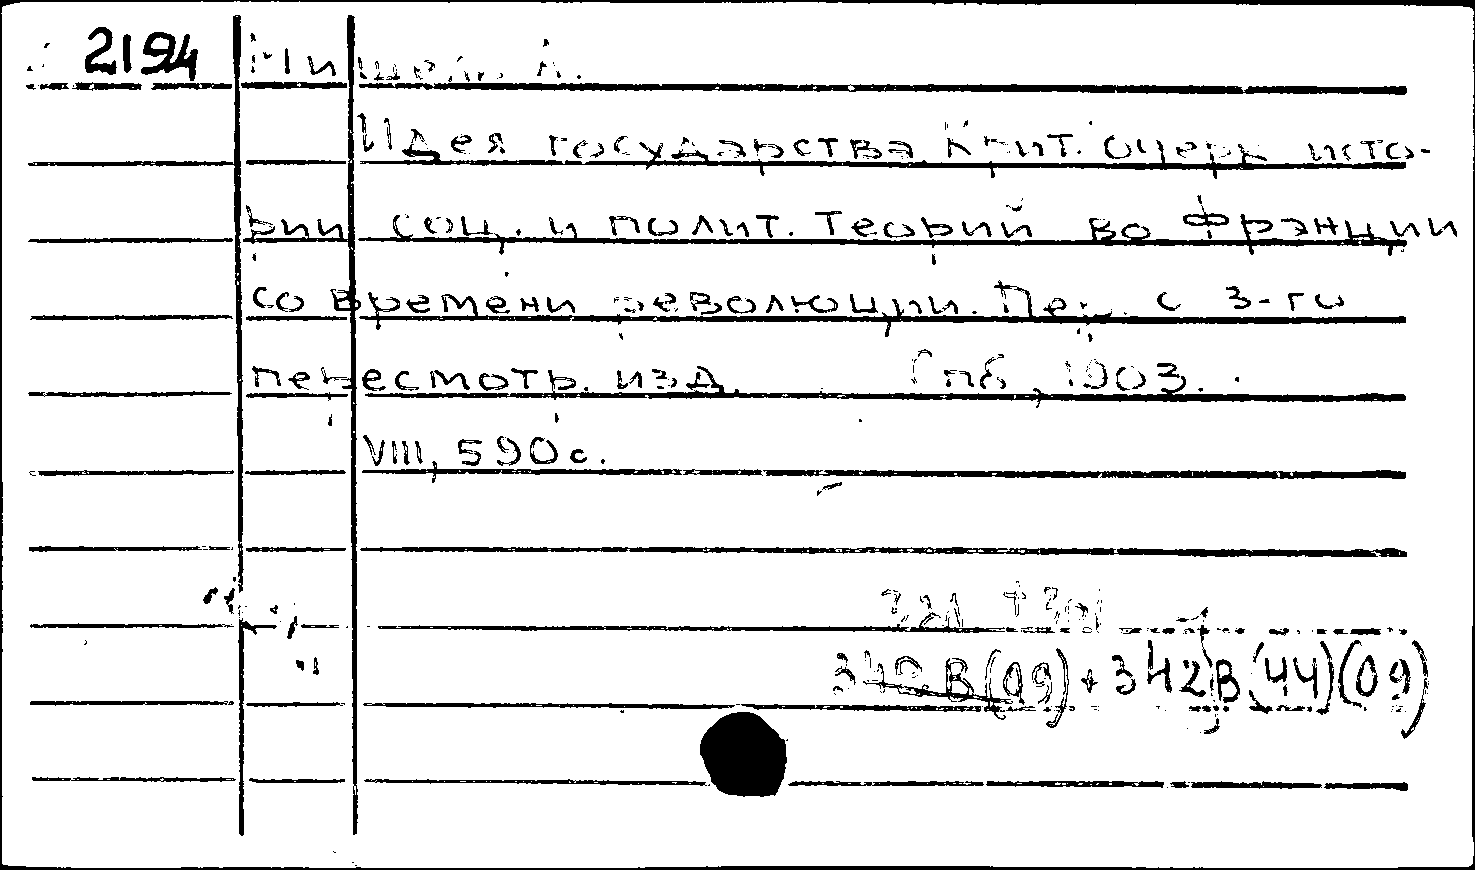 2194 Мишель А.
Идея государства. Крит. очерк исто-
рии соц. и полит. теорий во Франции
со времени революции. Пер. с 3-го
пересмотр. изд. Спб, 1903.
VIII, 590 с.
342В(09) + 342В(44)(09)